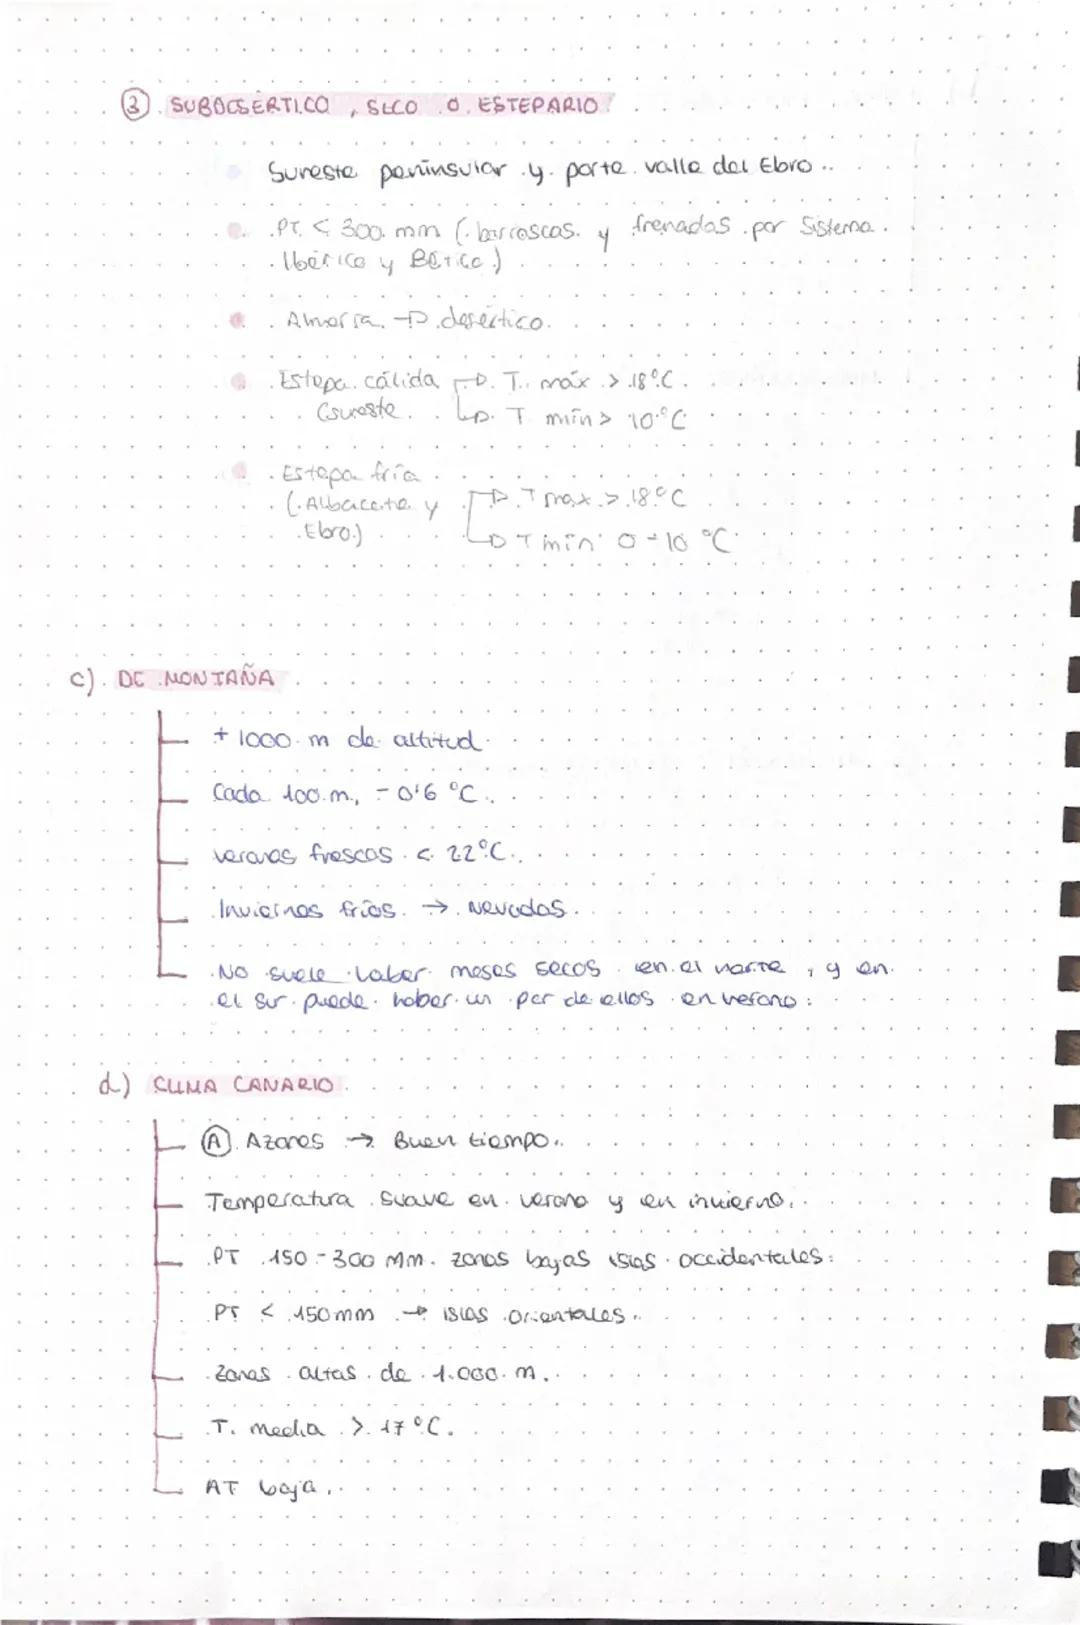 ③ SUBDESÉRTICO, SECO O ESTEPARIO
Sureste peninsular y parte valle del Ebro.
PT < 300 mm (borrascas y frenadas por Sistema
Ibérico y Bético)
Almería → desértico.
Estepa cálida → T. máx > 18ºC.
(sureste → T mín > 10ºC
Estepa fría
(Albacete y → T max > 18ºC
Ebro) → T mín 0-10 ºC
c) DE MONTAÑA
+ 1000 m de altitud
Cada 100 m, - 0'6 ºC.
Veranos frescos < 22ºC.
Inviernos fríos → Nevadas.
No suele haber meses secos en el norte, y en
el sur puede haber un par de ellos en verano.
d) CLIMA CANARIO
Ⓐ Azores → Buen tiempo.
Temperatura suave en verano y en invierno.
PT 150-300 mm. zonas bajas islas occidentales.
PT < 150mm → islas orientales.
Zonas altas de 1.000 m.
T. media > 17ºC.
AT baja.